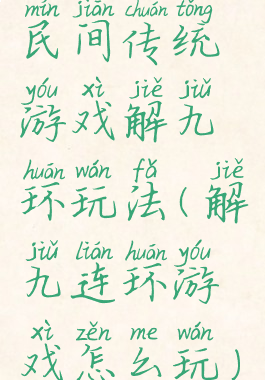 mín jiān chuán tǒng
民间传统
yóu xì jiě jiǔ
游戏解九
huán wán fǎ ( jiě
环玩法(解
jiǔ lián huán yóu
九连环游
xì zěn me wán )
戏怎么玩)